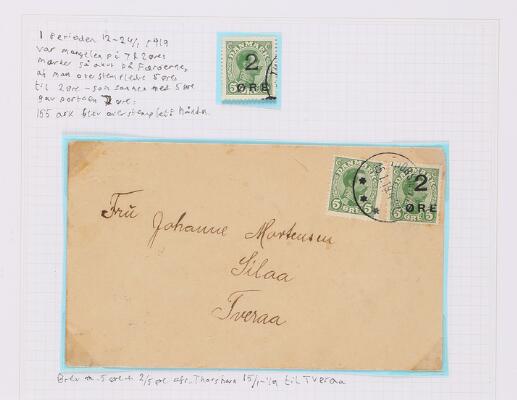 I perioden 12-24/1 1919
var manglen på 7 & 2 øres
mærker så akut på Færøerne,
at man overstemplede 5 øres
til 2 øre - som sammen med 5 øre
gav portoen 7 øre.
155 ark blev overstemplet i hånden
DANMARK
2
ØRE
DANMARK
5 ØRE 5
DANMARK
2
ØRE
5 5
Frü Johanne Mortensen
Silaa
Tveraa
Brev m. 5 øre + 2/5 øre afs. Thorshavn 15/1-19 til Tveraa